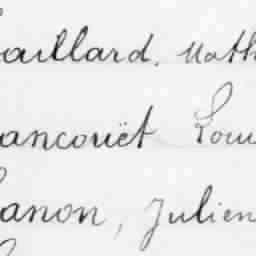 aillard. Math
ancouët Loui
anon, Julien